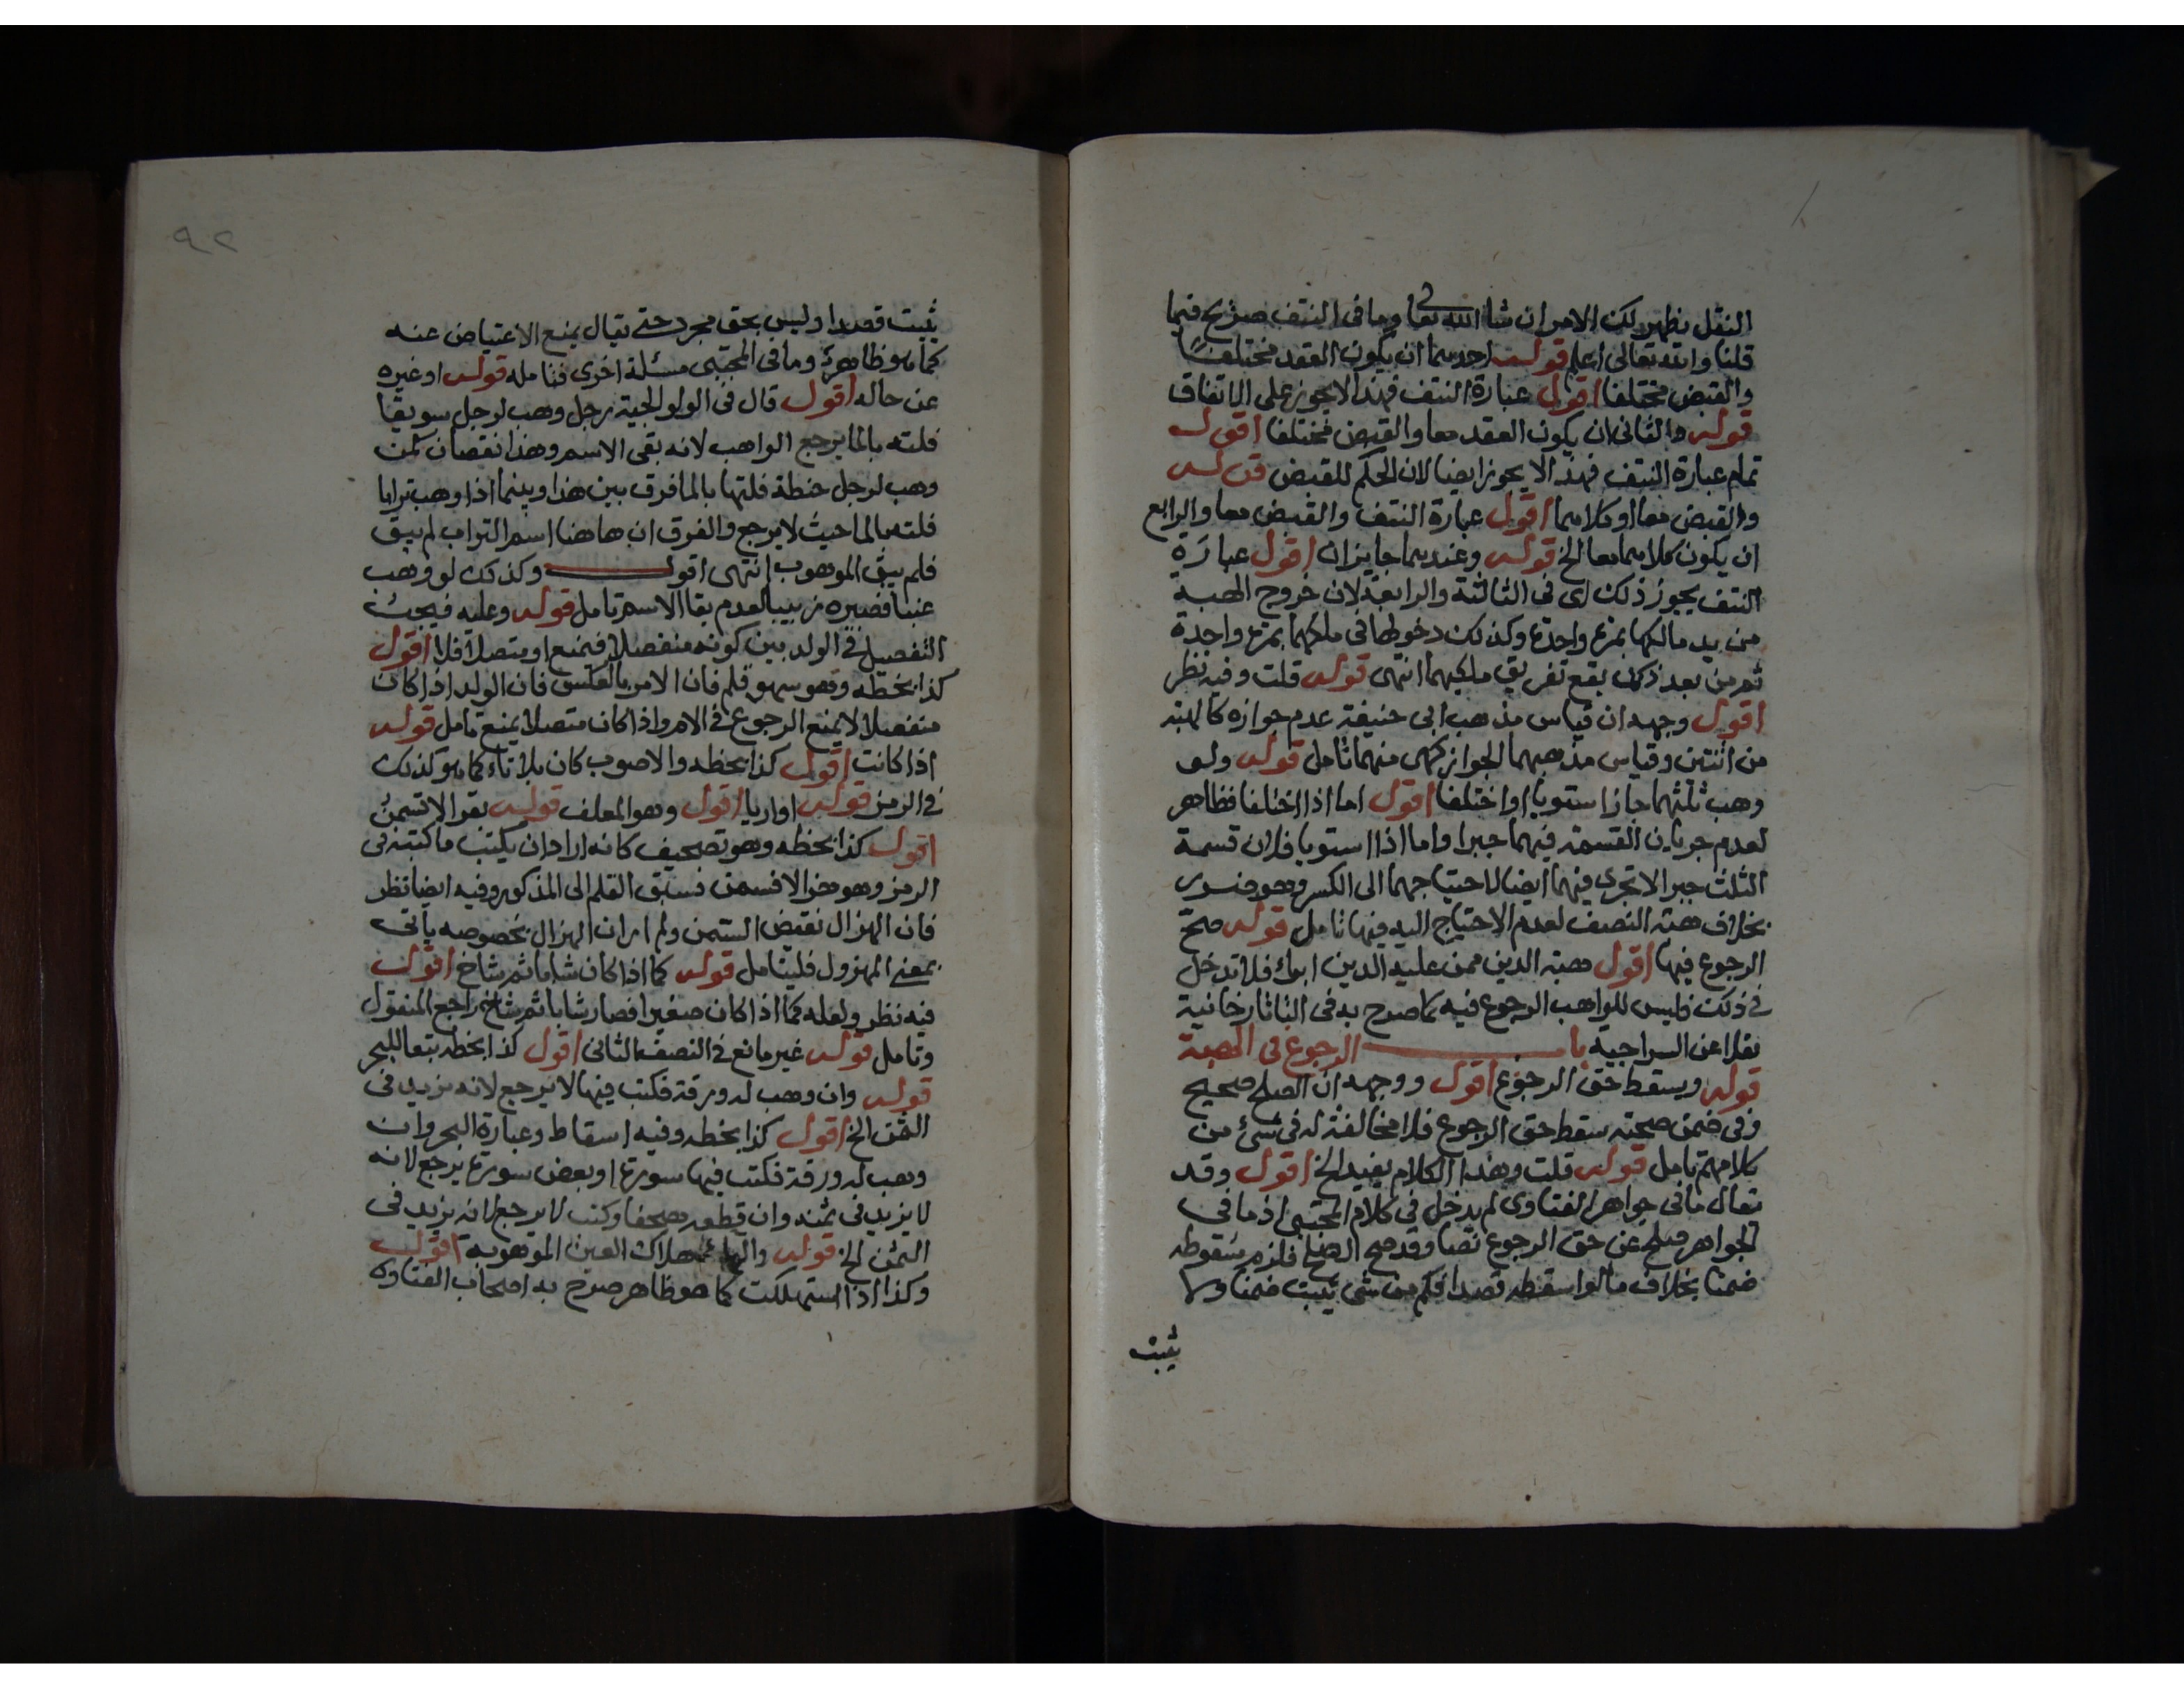 النقل يظهر لك الامر ان شا الله تعا وما فى النتف صريح فيما
قلنا والله تعالى اعلم قوله احدهما ان يكون العقد مختلفا
والقبض مختلفا اقول عبارة النتف فهذا لا يجوز على الاتفاق
قوله والثانى ان يكون العقد معا والقبض مختلفا اقول
تمام عبارة النتف فهذا لا يجوز ايضا لان الحكم للقبض قوله
والقبض معا او كلاهما اقول عبارة النتف والقبض معا والرابع
ان يكون كلاهما معا الخ قوله وعندهما جايزان اقول عبارة
النتف يجوز ذلك اى فى الثالثة والرابعة لان خروج الهبة
من يد مالكها بمرة واحدة وكذلك دخولها فى ملكهما بمرة واحدة
ثم من بعد ذلك يقع تفريق ملكيهما انتهى قوله قلت وفيه نظر
اقول وجهه ان قياس مذهب ابى حنيفة عدم جوازه كالهبة
من اثنين وقياس مذهبهما الجواز كهى منهما تامل قوله ولو
وهب ثلثهما جاز استويا او اختلفا اقول اما اذا اختلفا فظاهر
لعدم جريان القسمة فيهما جبرا واما اذا استويا فلان قسمة
الثلث جبرا لا تجرى فيهما ايضا لاحتياجهما الى الكسر وهو ضرر
بخلاف هبة النصف لعدم الاحتياج اليه فيها تامل قوله صح
الرجوع فيها اقول هبة الدين ممن عليه الدين ابراء فلا تدخل
فى ذلك فليس للواهب الرجوع فيه كما صرح به فى التاتارخانية
نقلا عن السراجية باب الرجوع فى الهبة
قوله ويسقط حق الرجوع اقول ووجهه ان الصلح صحيح
وفى ضمن صحته سقط حق الرجوع فلا مخالفة له فى شئ من
كلامهم تامل قوله قلت وهذا الكلام يفيد الخ اقول وقد
يقال ما فى جواهر الفتاوى لم يدخل فى كلام المجتبى اذ ما فى
الجواهر صلح عن حق الرجوع نصا وقد صح الصلح فلزم سقوطه
ضمنا بخلاف ما لو اسقطه قصدا فكم من شى يثبت ضمنا ولا
يثبت
٩٢
يثبت قصدا وليس بحق مجرد حتى يقال بمنع الاعتياض عنه
كما هو ظاهر وما فى المجتبى مسئلة اخرى فتامله قوله او غيره
عن حاله اقول قال فى الولوالجية رجل وهب لرجل سويقا
فلته بالما يرجع الواهب لانه بقى الاسم وهذا نقصان كمن
وهب لرجل حنطة فلتها بالما فرق بين هذا وبينما اذا وهب ترابا
فلته بالما حيث لا يرجع والفرق ان ها هنا اسم التراب لم يبق
فلم يبق الموهوب انتهى اقول وكذلك لو وهب
عنبا فصيره زبيبا لعدم بقا الاسم تامل قوله وعليه فيجب
التفصيل فى الولد بين كونه منفصلا فيمنع او متصلا فلا اقول
كذا بخطه وهو سهو قلم فان الامر بالعكس فان الولد اذا كان
منفصلا لا يمنع الرجوع فى الام واذا كان متصلا يمنع تامل قوله
اذا كانت اقول كذا بخطه والاصوب كان بلا تاء كما هو كذلك
فى الرمز قوله او اريا اقول وهو المعلف قوله
اقول كذا بخطه وهو تصحيف كانه اراد ان يكتب ما كتبه فى
الرمز وهو فسبق القلم الى المذكور وفيه ايضا نظر
فان الهزال نقيض السمن ولم ار ان الهزال بخصوصه ياتى
بمعنى المهزول فليتامل قوله كما اذا كان شابا ثم شاخ اقول
فيه نظر ولعله كما اذا كان صغيرا فصار شابا ثم شاخ راجع المنقول
وتامل قوله غير مانع فى النصف الثانى اقول كذا بخطه تبعا للبحر
قوله وان وهب له ورقة فكتب فيها لا يرجع لانه يزيد فى
الثمن الخ اقول كذا بخطه وفيه اسقاط وعبارة البحر وان
وهب له ورقة فكتب فيها سورة او بعض سورة يرجع لانه
لا يزيد فى ثمنه وان قطعه مصحفا وكتب لا يرجع لانه يزيد فى
الثمن الخ قوله والهاء هلاك العين الموهوبة اقول
وكذا اذا استهلكت كما هو ظاهر صرح به اصحاب الفتاوى